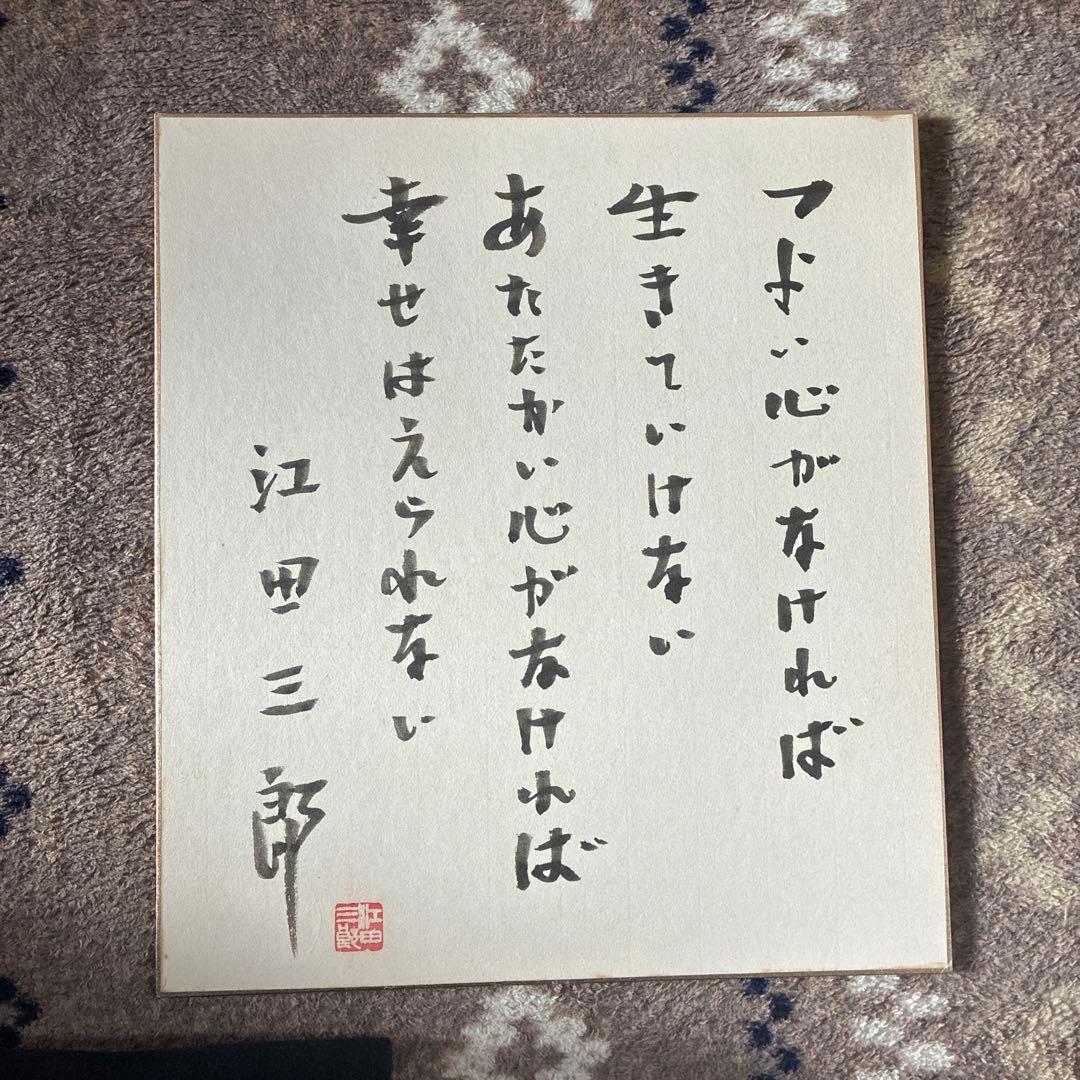 つよい心がなければ
生きていけない
あたたかい心がなければ
幸せはえられない
江田三郎
江田三郎